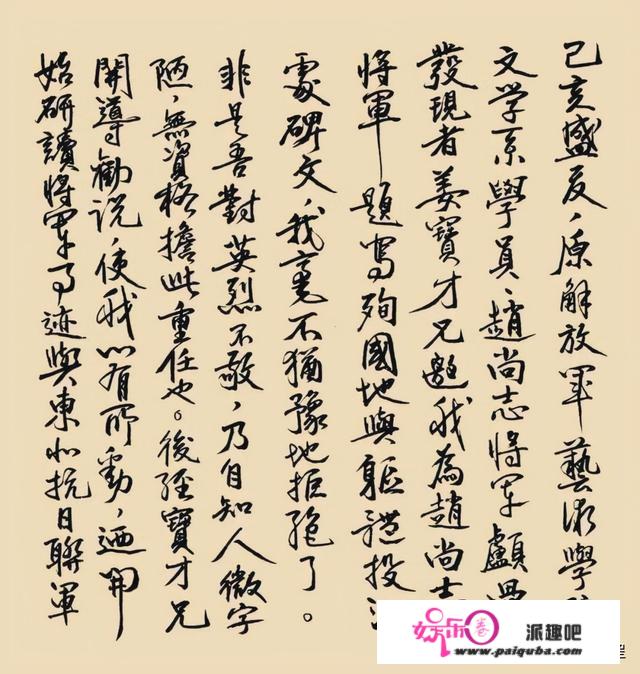 己亥盛夏，原解放軍藝術學
文学系學員、趙尚志將軍顱骨
發現者姜寶才兄邀我為趙尚志
將軍題寫殉國地與軀體投江
處碑文，我毫不猶豫地拒絕了。
非是吾對英烈不敬，乃自知人微字
陋，無資格擔此重任也。後經寶才兄
開導勸說，使我心有所動，迺開
始研讀將軍事迹與東北抗日聯軍
娱乐圈 派趣吧
www.paiquba.com